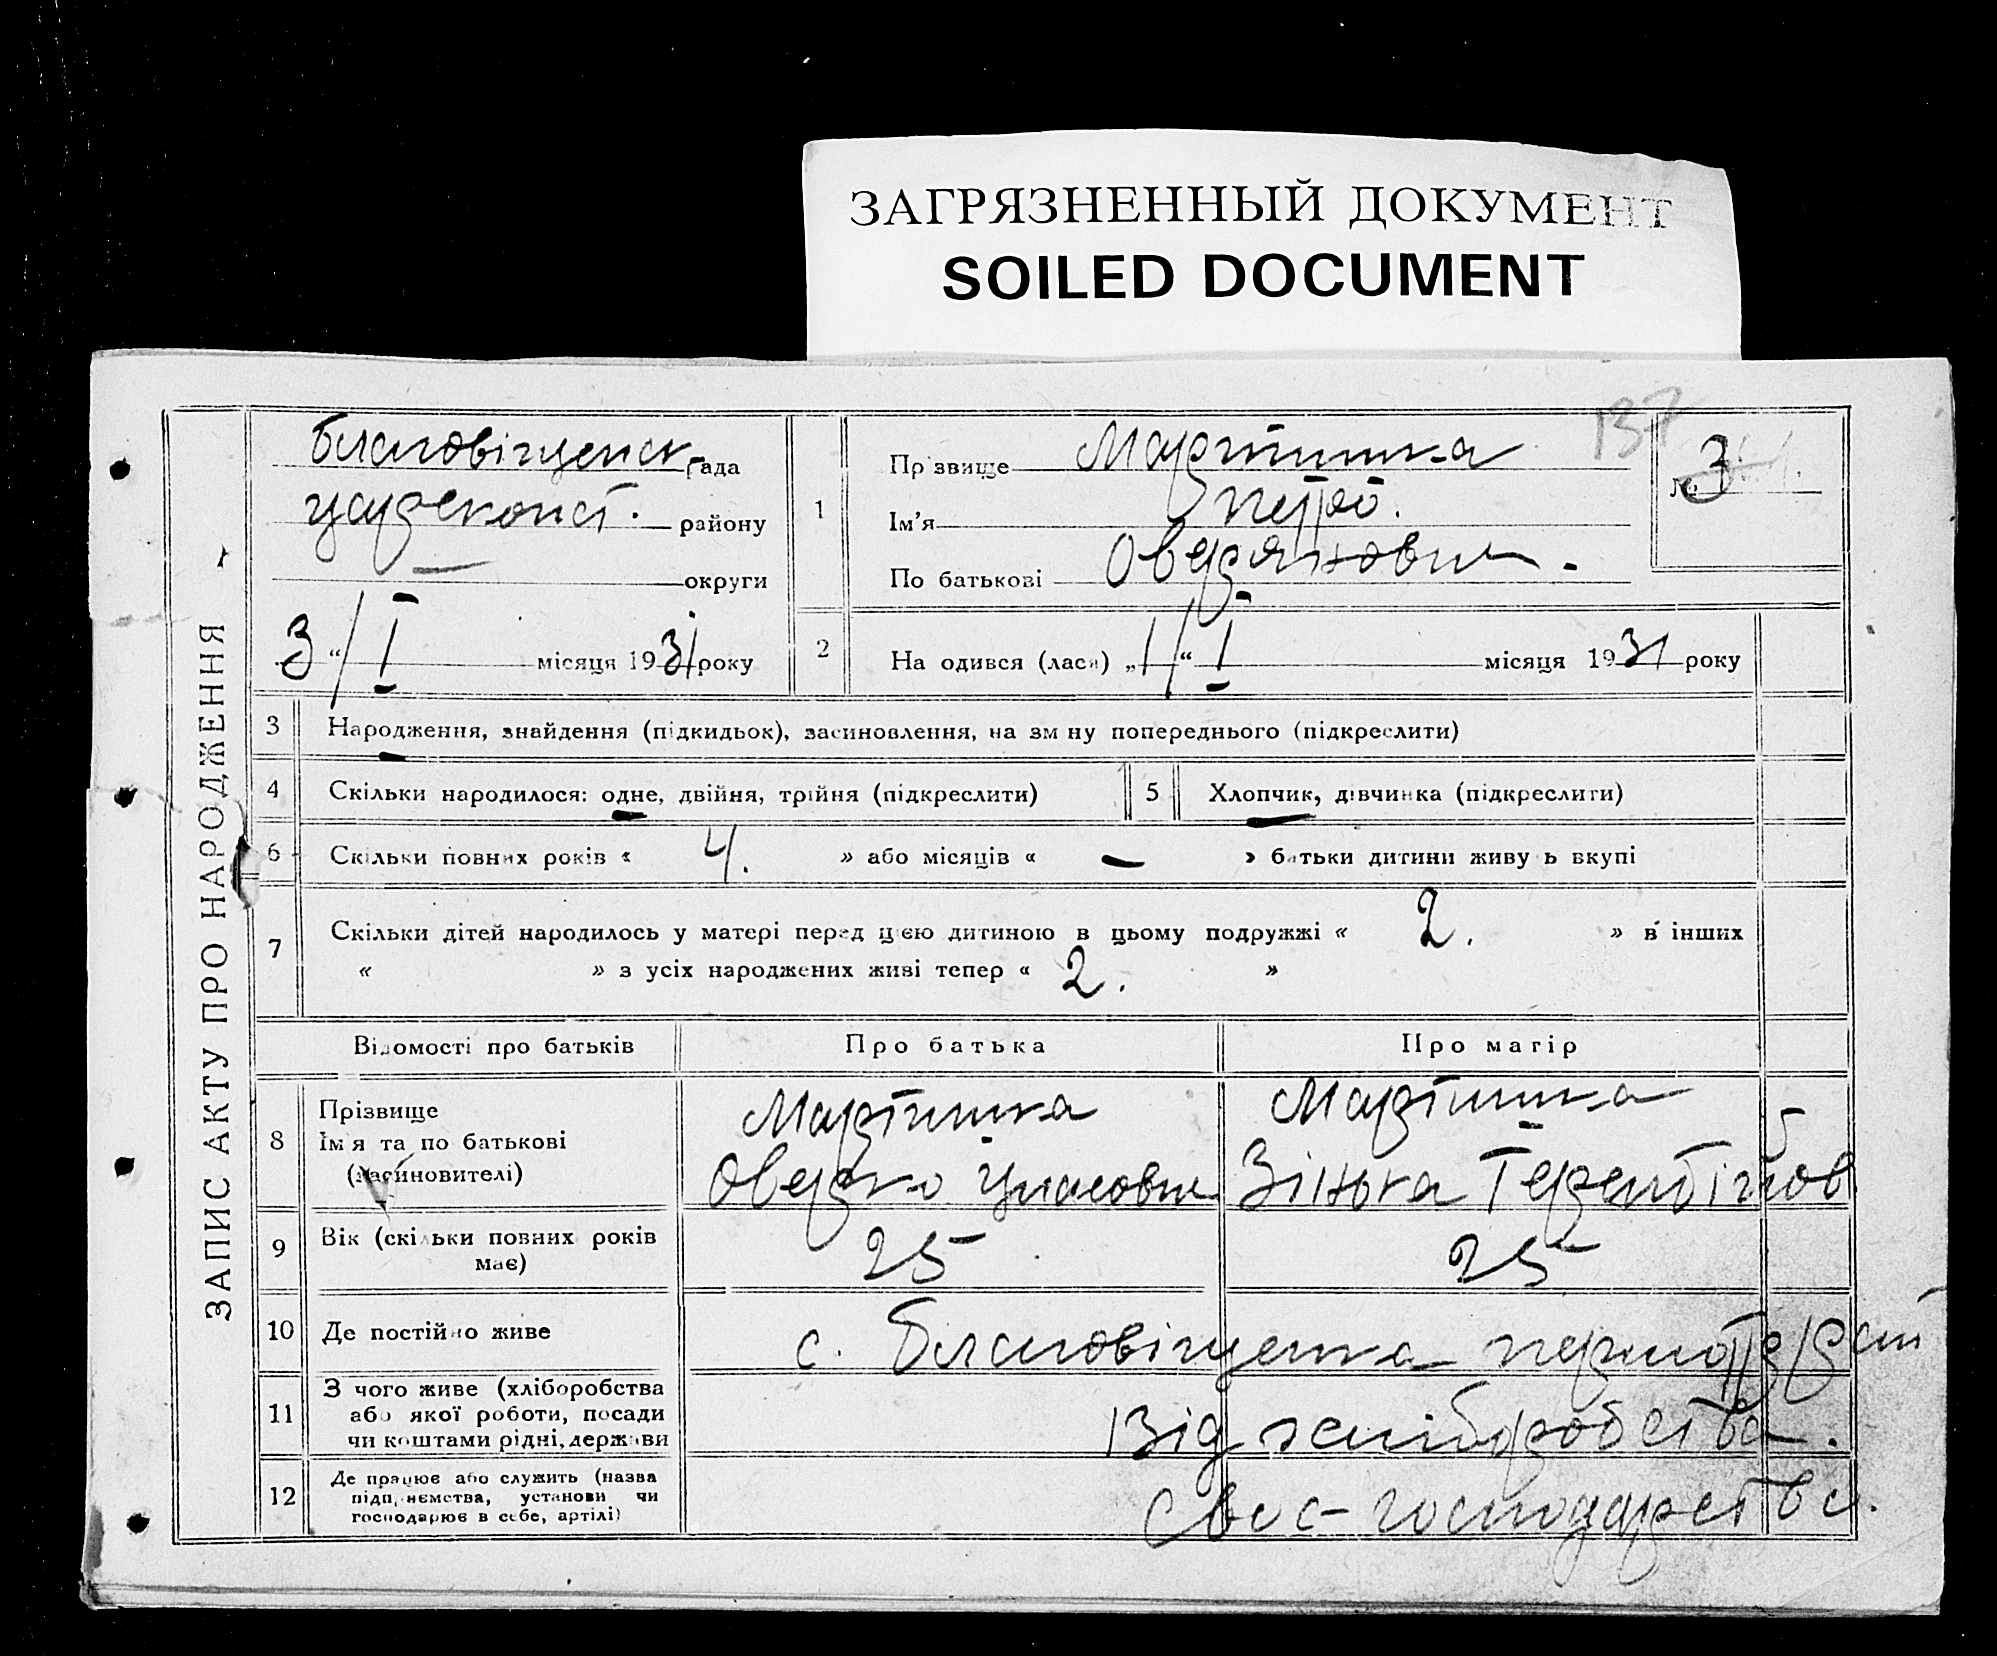 ЗАГРЯЗНЕННЫЙ ДОКУМЕНТ
SOILED DOCUMENT
137
ЗАПИС АКТУ ПРО НАРОДЖЕННЯ
Благовіщенск рада
цареконст. району
— округи
3 “ I місяця 1931 року
1
Прізвище Мартишка
Ім'я Петро.
По батькові Оверянович.
№ 3
2 На одився (лася) „1“ I місяця 1931 року
3 Народження, знайдення (підкидьок), засиновлення, на зм ну попереднього (підкреслити)
4 Скільки народилося: одне, двійня, трійня (підкреслити) 5 Хлопчик, дівчинка (підкреслити)
6 Скільки повних років « 4. » або місяців « — » батьки дитини живу ь вкупі
7 Скільки дітей народилось у матері перед цією дитиною в цьому подружжі « 2. » в інших
« » з усіх народжених живі тепер « 2. »
Відомості про батьків Про батька Про матір
8 Прізвище
Ім я та по батькові
(засиновителі)
Мартишка Мартишка
Оверко Зінька
9 Вік (скільки повних років
має)
25 25
10 Де постійно живе с. Благовіщенка
11 З чого живе (хліборобства
або якої роботи, посади
чи коштами рідні, держави
Від хліборобства.
12 Де працює або служить (назва
підприємства, установи чи
господарює в себе, артілі)
Своє господарство.